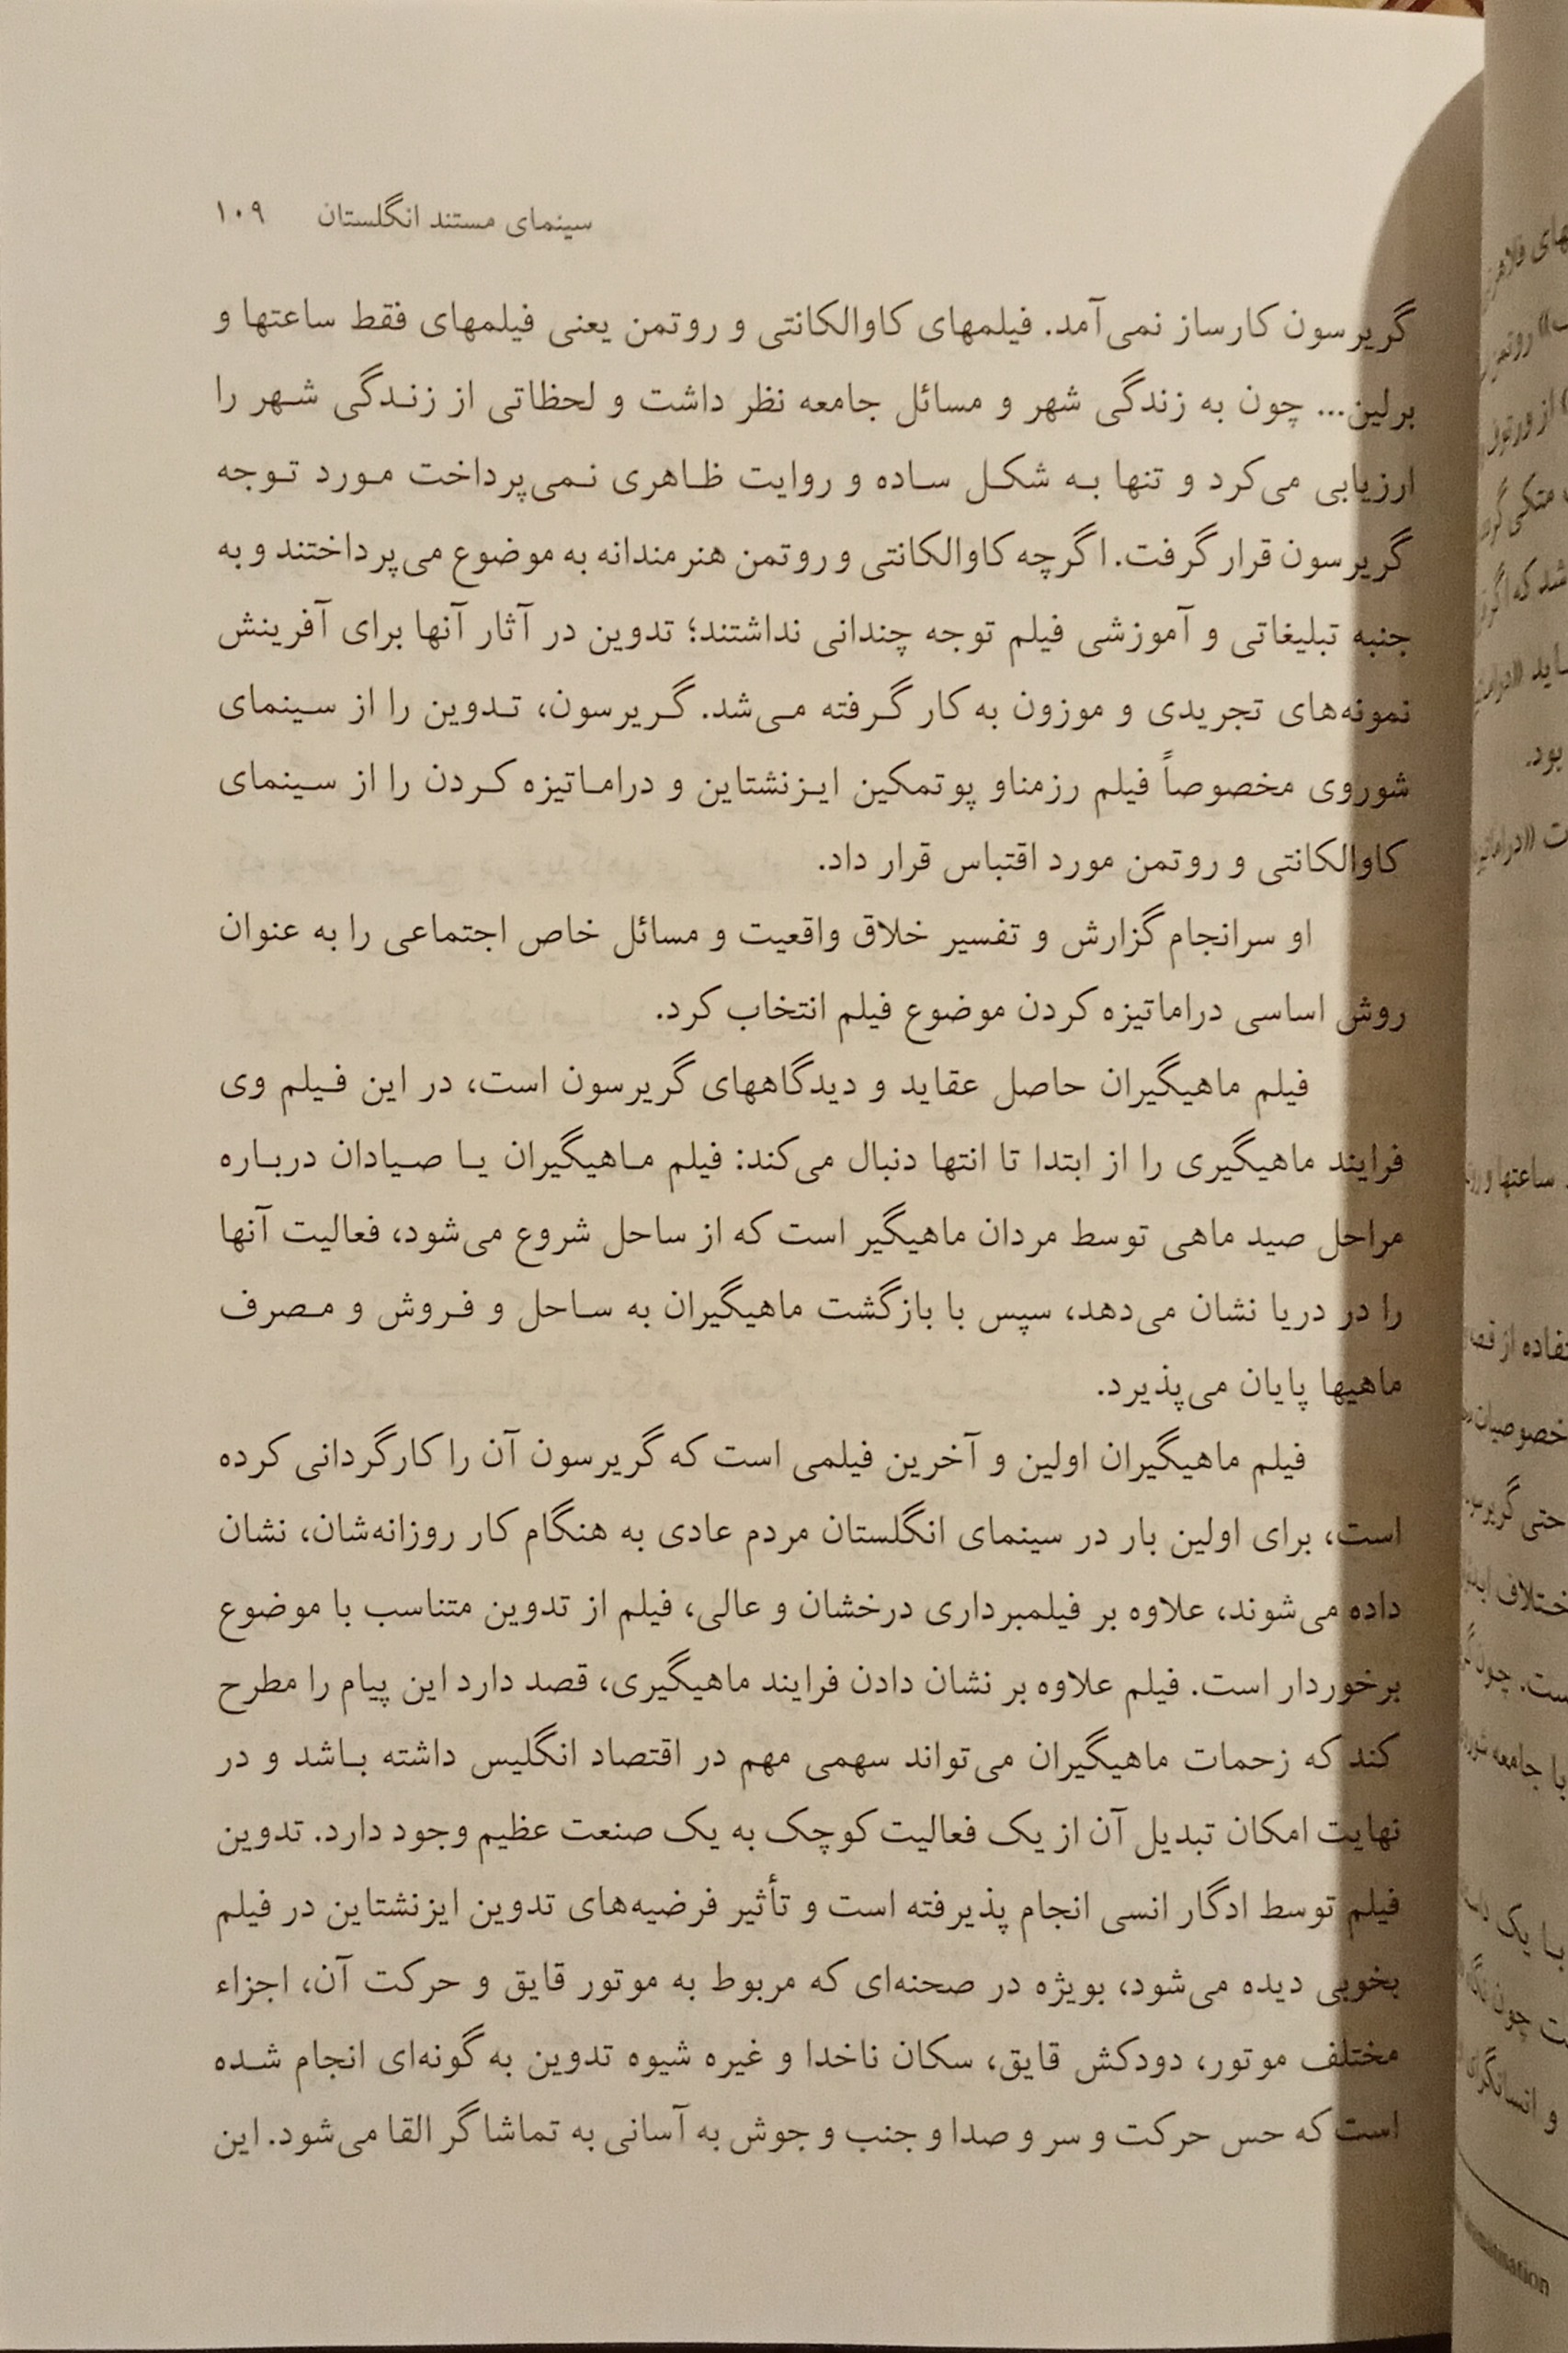 سینمای مستند انگلستان ۱۰۹
گریرسون کارساز نمی‌آمد. فیلمهای کاوالکانتی و روتمن یعنی فیلمهای فقط ساعتها و
برلین... چون به زندگی شهر و مسائل جامعه نظر داشت و لحظاتی از زندگی شهر را
ارزیابی می‌کرد و تنها به شکل ساده و روایت ظاهری نمی‌پرداخت مورد توجه
گریرسون قرار گرفت. اگرچه کاوالکانتی و روتمن هنرمندانه به موضوع می‌پرداختند و به
جنبه تبلیغاتی و آموزشی فیلم توجه چندانی نداشتند؛ تدوین در آثار آنها برای آفرینش
نمونه‌های تجریدی و موزون به کار گرفته می‌شد. گریرسون، تدوین را از سینمای
شوروی مخصوصاً فیلم رزمناو پوتمکین ایزنشتاین و دراماتیزه کردن را از سینمای
کاوالکانتی و روتمن مورد اقتباس قرار داد.
او سرانجام گزارش و تفسیر خلاق واقعیت و مسائل خاص اجتماعی را به عنوان
روش اساسی دراماتیزه کردن موضوع فیلم انتخاب کرد.
فیلم ماهیگیران حاصل عقاید و دیدگاههای گریرسون است، در این فیلم وی
فرایند ماهیگیری را از ابتدا تا انتها دنبال می‌کند: فیلم ماهیگیران یا صیادان درباره
مراحل صید ماهی توسط مردان ماهیگیر است که از ساحل شروع می‌شود، فعالیت آنها
را در دریا نشان می‌دهد، سپس با بازگشت ماهیگیران به ساحل و فروش و مصرف
ماهیها پایان می‌پذیرد.
فیلم ماهیگیران اولین و آخرین فیلمی است که گریرسون آن را کارگردانی کرده
است، برای اولین بار در سینمای انگلستان مردم عادی به هنگام کار روزانه‌شان، نشان
داده می‌شوند، علاوه بر فیلمبرداری درخشان و عالی، فیلم از تدوین متناسب با موضوع
برخوردار است. فیلم علاوه بر نشان دادن فرایند ماهیگیری، قصد دارد این پیام را مطرح
کند که زحمات ماهیگیران می‌تواند سهمی مهم در اقتصاد انگلیس داشته باشد و در
نهایت امکان تبدیل آن از یک فعالیت کوچک به یک صنعت عظیم وجود دارد. تدوین
فیلم توسط ادگار انسی انجام پذیرفته است و تأثیر فرضیه‌های تدوین ایزنشتاین در فیلم
بخوبی دیده می‌شود، بویژه در صحنه‌ای که مربوط به موتور قایق و حرکت آن، اجزاء
مختلف موتور، دودکش قایق، سکان ناخدا و غیره شیوه تدوین به گونه‌ای انجام شده
است که حس حرکت و سر و صدا و جنب و جوش به آسانی به تماشاگر القا می‌شود. این